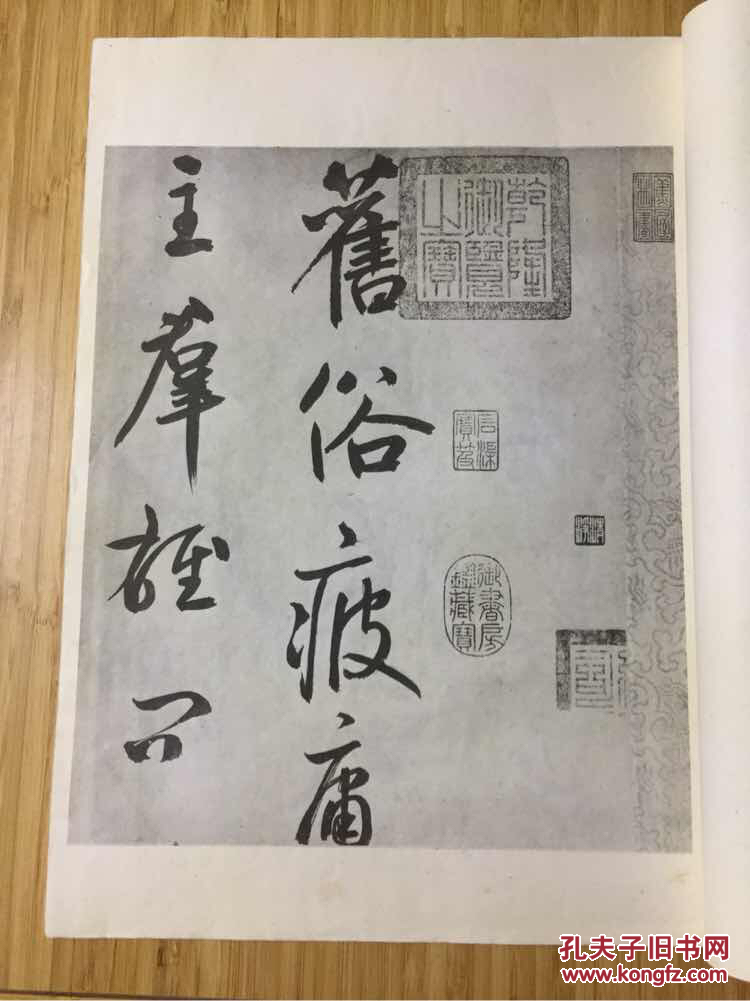 乾隆
御覽
之寶
石渠
寶笈
御書房
鑑藏寶
舊俗疲庸
主羣雄問
孔夫子旧书网
www.kongfz.com